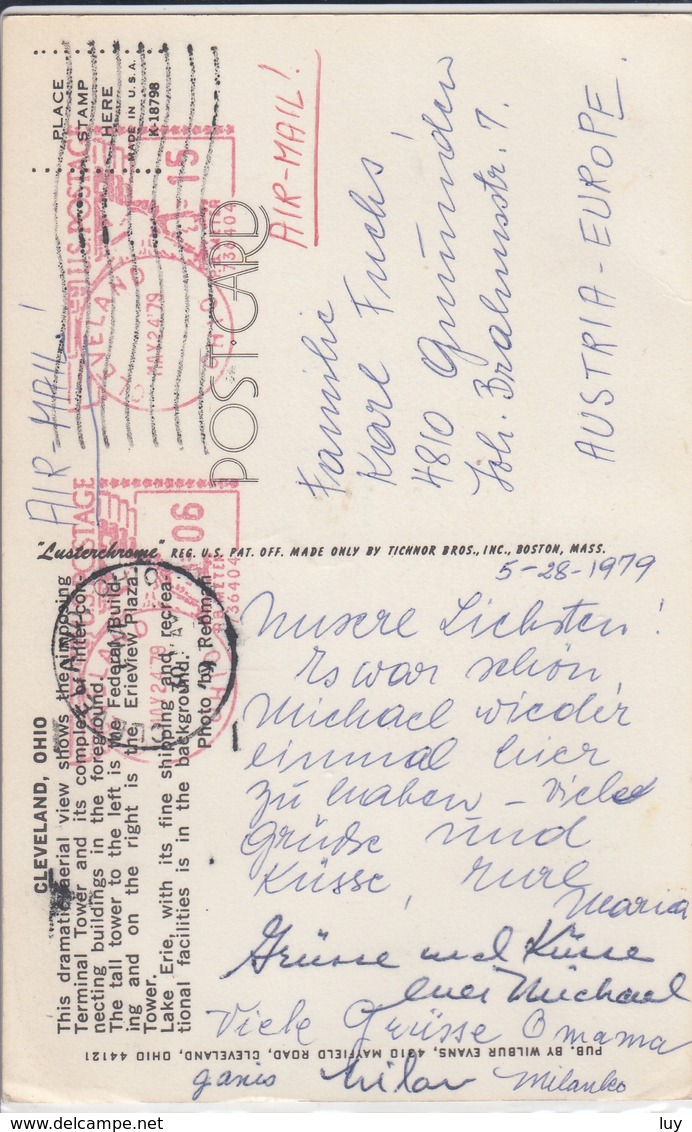 PLACE
STAMP
HERE
MADE IN U.S.A.
K-18798
AIR-MAIL!
U.S. POSTAGE
15
MAY 24 '79
OHIO
AIR-MAIL!
POST CARD
Familie
Karl Fuchs!
4810 Gmunden
Joh. Brahmsstr. 7.
AUSTRIA-EUROPE.
POSTAGE
06
MAY 24 '79
OHIO
"Lusterchrome" REG. U.S. PAT. OFF. MADE ONLY BY TICHNOR BROS., INC., BOSTON, MASS.
CLEVELAND, OHIO
This dramatic aerial view shows the imposing
Terminal Tower and its complex of intercon-
necting buildings in the foreground.
The tall tower to the left is the Federal Build-
ing and on the right is the ErieView Plaza
Tower.
Lake Erie, with its fine shipping and recrea-
tional facilities is in the background.
Photo by Rebman
5-28-1979
Unsere Liebsten!
Es war schön,
Michael wieder
einmal hier
zu haben – Viele
Grüße und
Küsse, eure
Maria
Grüsse und Küsse
euer Michael
Viele Grüsse Omama
Milan Milanko
PUB. BY WILBUR EVANS, 4310 MAYFIELD ROAD, CLEVELAND, OHIO 44121
luy